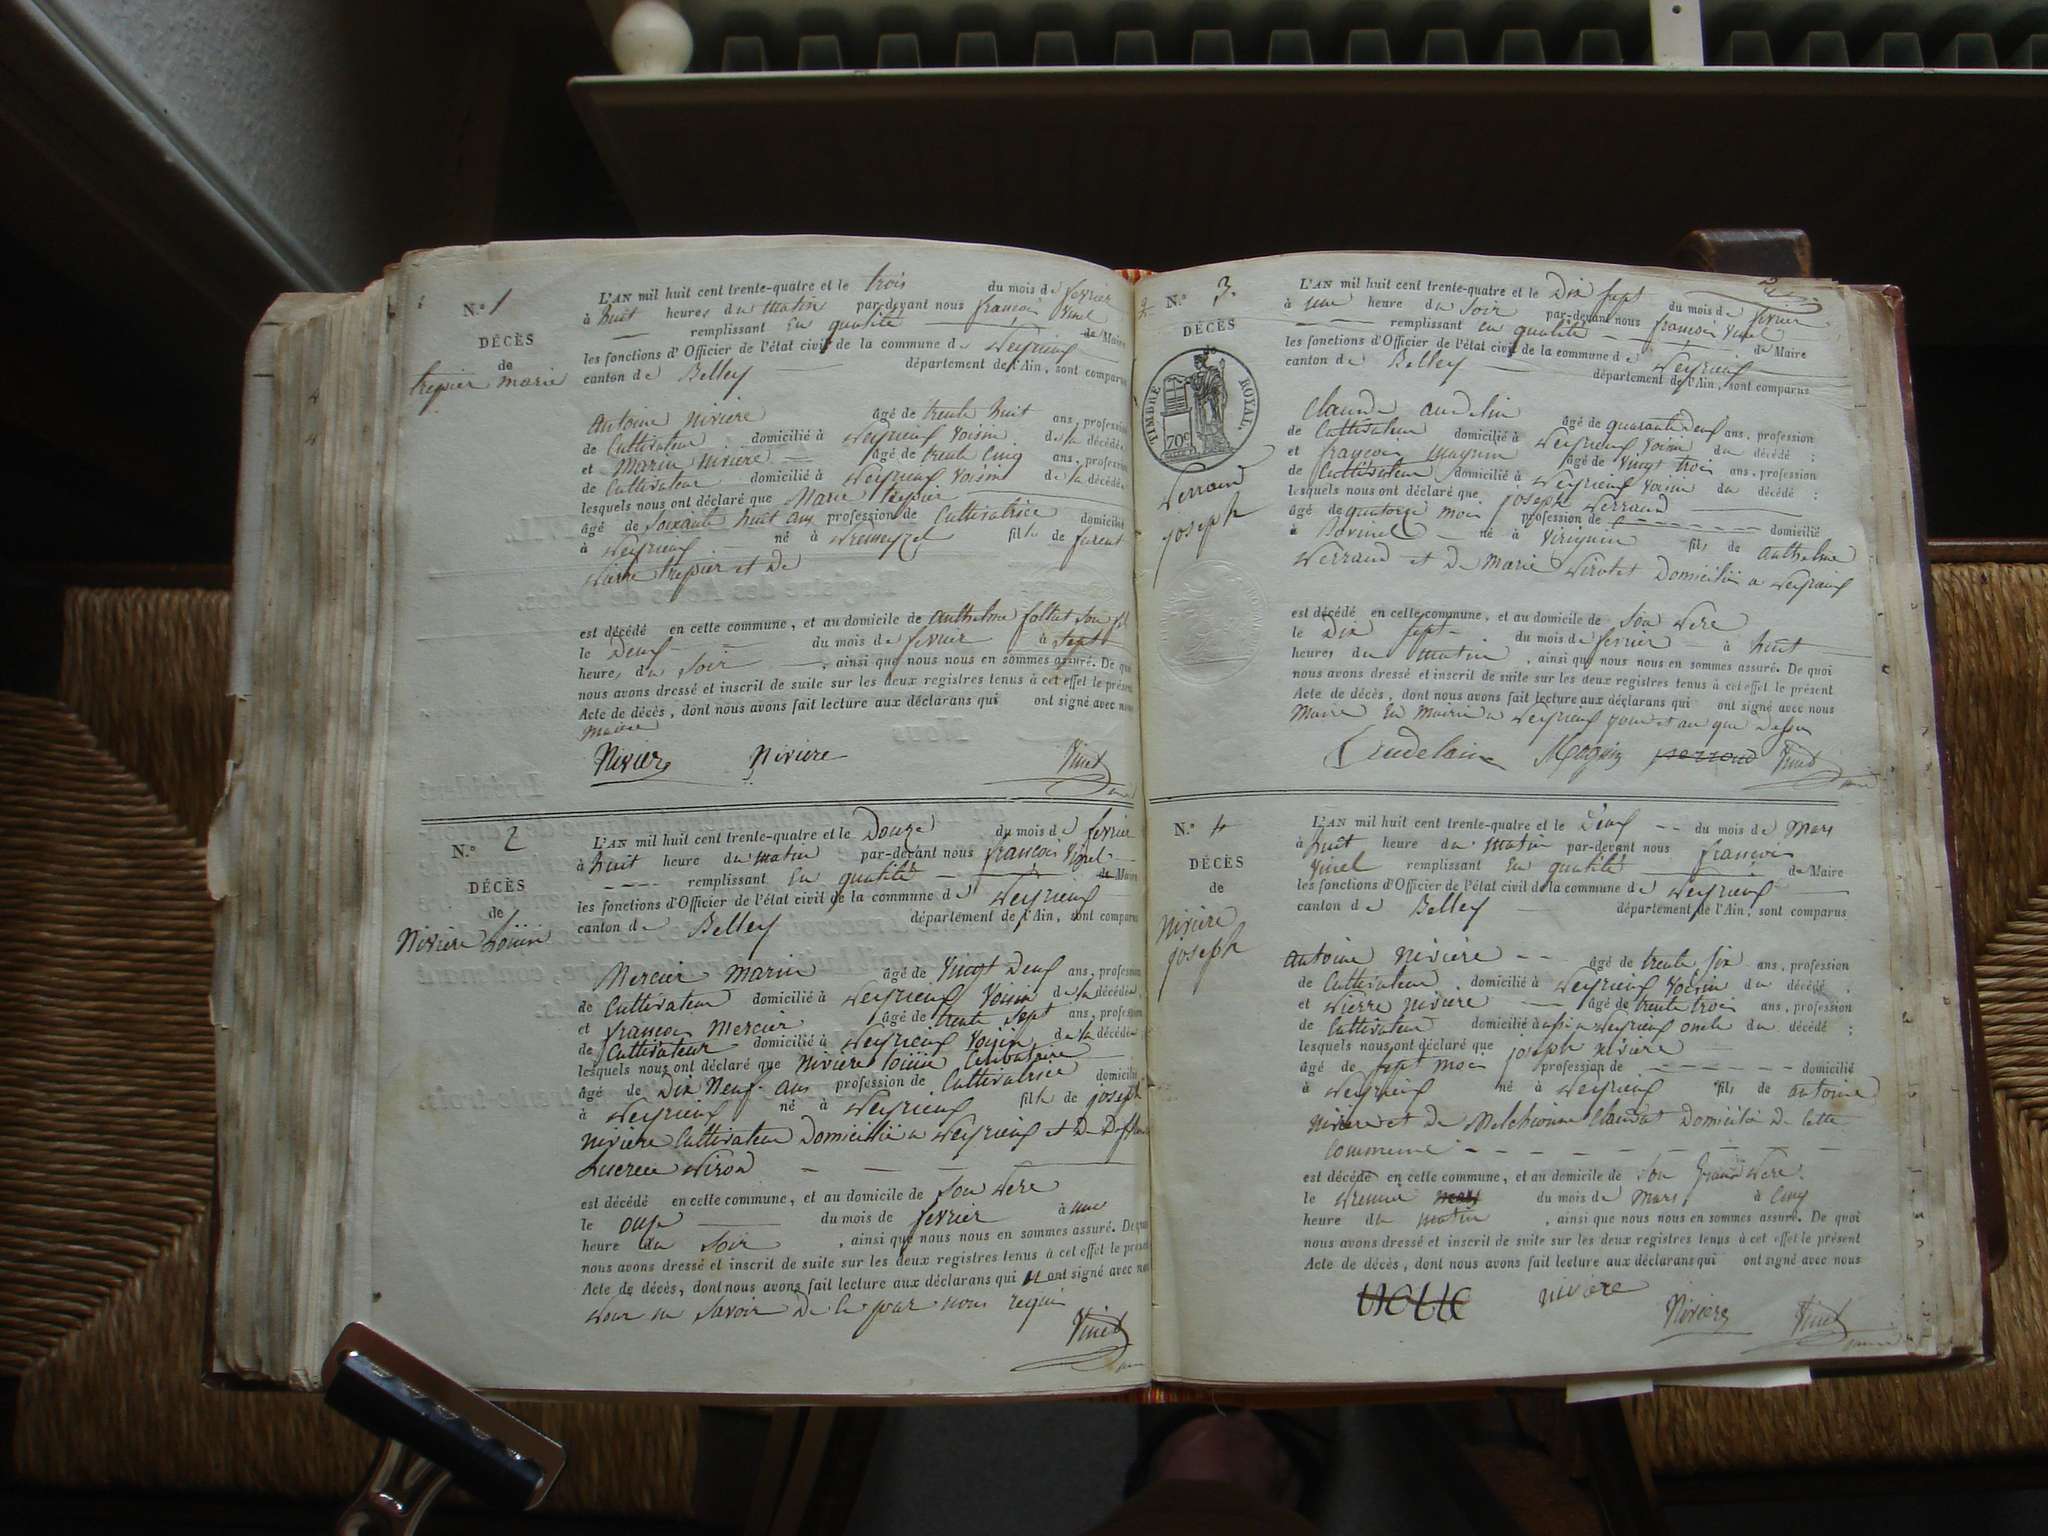 N.º 1
DÉCÈS
de
trepier marie
L'AN mil huit cent trente-quatre et le trois du mois de fevrier
à huit heures du matin par-devant nous françois Vinel
remplissant en qualité de Maire
les fonctions d'Officier de l'état civil de la commune de Weyrieuf
canton de Belley département de l'Ain, sont comparus
Antoine Niviere âgé de trente huit ans, profession
de Cultivateur domicilié à Weyrieuf Voisin de la décédée,
et Marin Niviere âgé de trente cinq ans, profession
de Cultivateur domicilié à Weyrieuf Voisin de la décédée
lesquels nous ont déclaré que Marie trepier
âgé de Soixante huit ans profession de Cultivatrice domicilié
à Weyrieuf né à fille de furent
Wierre trepier et de
est décédé en cette commune, et au domicile de anthelme son
le Deux du mois de fevrier à sept
heures du Soir, ainsi que nous nous en sommes assuré. De quoi
nous avons dressé et inscrit de suite sur les deux registres tenus à cet effet le présent
Acte de décès, dont nous avons fait lecture aux déclarans qui ont signé avec nous
Maire
Niviere Niviere Vinel
N.º 2
DÉCÈS
de
Niviere Louise
L'AN mil huit cent trente-quatre et le Douze du mois de fevrier
à huit heure du matin par-devant nous françois Vinel
remplissant en qualité de Maire
les fonctions d'Officier de l'état civil de la commune de Weyrieuf
canton de Belley département de l'Ain, sont comparus
Mercier Marin âgé de Vingt Deux ans, profession
de Cultivateur domicilié à Weyrieuf Voisin de la décédée,
et françois Mercier âgé de trente sept ans, profession
de Cultivateur domicilié à Weyrieuf Voisin de la décédée
lesquels nous ont déclaré que Niviere Louise Celibataire
âgé de Dix Neuf ans profession de Cultivatrice domicilié
à Weyrieuf né à Weyrieuf fille de joseph
Niviere Cultivateur Domicilié a Weyrieuf et De
Lucrece Wiron
est décédé en cette commune, et au domicile de Son Were
le onze du mois de fevrier à une
heure du Soir, ainsi que nous nous en sommes assuré. De quoi
nous avons dressé et inscrit de suite sur les deux registres tenus à cet effet le présent
Acte de décès, dont nous avons fait lecture aux déclarans qui n ont signé avec nous
Wour ne Savoir De ce par nous requis
Vinel
N.º 3.
DÉCÈS
de
TIMBRE ROYAL.
70c
Werraud
joseph
L'AN mil huit cent trente-quatre et le Dix sept du mois de fevrier
à une heure du Soir par-devant nous françois Vinel
remplissant en qualité de Maire
les fonctions d'Officier de l'état civil de la commune de Weyrieuf
canton de Belley département de l'Ain, sont comparus
Claude audelin âgé de quarante Deux ans, profession
de Cultivateur domicilié à Weyrieuf Voisin du décédé ;
et françois Magnin âgé de Vingt trois ans, profession
de Cultivateur domicilié à Weyrieuf Voisin du décédé ;
lesquels nous ont déclaré que joseph Werraud
âgé de quatorze mois profession de domicilié
à né à Virignin fils de anthelme
Werraud et De Marie Domiciliés a Weyrieuf
est décédé en cette commune, et au domicile de Son Were
le Dix sept du mois de fevrier à huit
heures du matin, ainsi que nous nous en sommes assuré. De quoi
nous avons dressé et inscrit de suite sur les deux registres tenus à cet effet le présent
Acte de décès, dont nous avons fait lecture aux déclarans qui ont signé avec nous
Maire En Mairie a Weyrieuf jour et an que Dessus
Magnin Vinel
N.º 4
DÉCÈS
de
Niviere
joseph
L'AN mil huit cent trente-quatre et le Deux du mois de Mars
à huit heure du matin par-devant nous françois
Vinel remplissant en qualité de Maire
les fonctions d'Officier de l'état civil de la commune de Weyrieuf
canton de Belley département de l'Ain, sont comparus
Antoine Niviere âgé de trente six ans, profession
de Cultivateur domicilié à Weyrieuf Voisin du décédé ;
et Wierre Niviere âgé de trente trois ans, profession
de Cultivateur domicilié aussi a Weyrieuf oncle du décédé ;
lesquels nous ont déclaré que joseph Niviere
âgé de sept mois profession de domicilié
à Weyrieuf né à Weyrieuf fils de antoine
Niviere et de Melchionne Claudat Domiciliés De Cette
Commune
est décédé en cette commune, et au domicile de Son Grand Were
le Wremier du mois de Mars à Cinq
heure du matin, ainsi que nous nous en sommes assuré. De quoi
nous avons dressé et inscrit de suite sur les deux registres tenus à cet effet le présent
Acte de décès, dont nous avons fait lecture aux déclarans qui ont signé avec nous
niviere Niviere Vinel